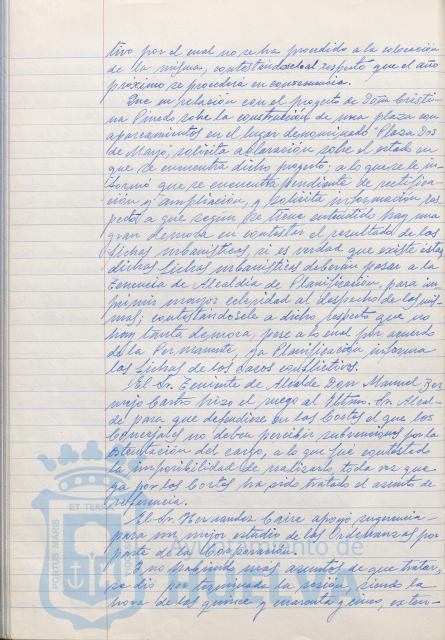 tivo por el cual no se ha procedido a la colocación
de la misma, contestándosele al respecto que el año
próximo se procederá en consecuencia.
Que en relación con el proyecto de Doña Cristi-
na Pinedo sobre la construcción de una plaza con
aparcamientos en el lugar denominado "Plaza Dos
de Mayo", solicita aclaración sobre el estado en
que se encuentra dicho proyecto; a lo que se le in-
formó que se encuentra pendiente de rectifica-
ción y ampliación, y solicita información res-
pecto a que según se tiene entendido hay una
gran demora en contestar el resultado de las
fichas urbanísticas, si es verdad que existe estas
dichas fichas urbanísticas deberán pasar a la
Tenencia de Alcaldía de Planificación, para im-
primir mayor celeridad al despacho de las mis-
mas; contestándosele a dicho respecto que no
hay tanta demora, pese a lo cual por acuerdo
de la Permanente, ya Planificación informa
las fichas de los casos conflictivos.
El Sr. Teniente de Alcalde Don Manuel Ber-
mejo Castro hizo el ruego al Iltmo. Sr. Alcal-
de para que defendiese en las Cortes el que los
Concejales no deben percibir subvenciones por la
ostentación del cargo, a lo que fue contestado
la imposibilidad de realizarlo, toda vez que
ya por las Cortes ha sido tratado el asunto de
referencia.
El Sr. Hernández Caire apoyó sugerencia
para un mejor estudio de las Ordenanzas por
parte de la Corporación.
Y no habiendo más asuntos de que tratar,
se dió por terminada la sesión, siendo la
hora de las quince y cuarenta y cinco, exten-
PORTUS MARIS
ET TERRAE
Ayuntamiento de
HUELVA